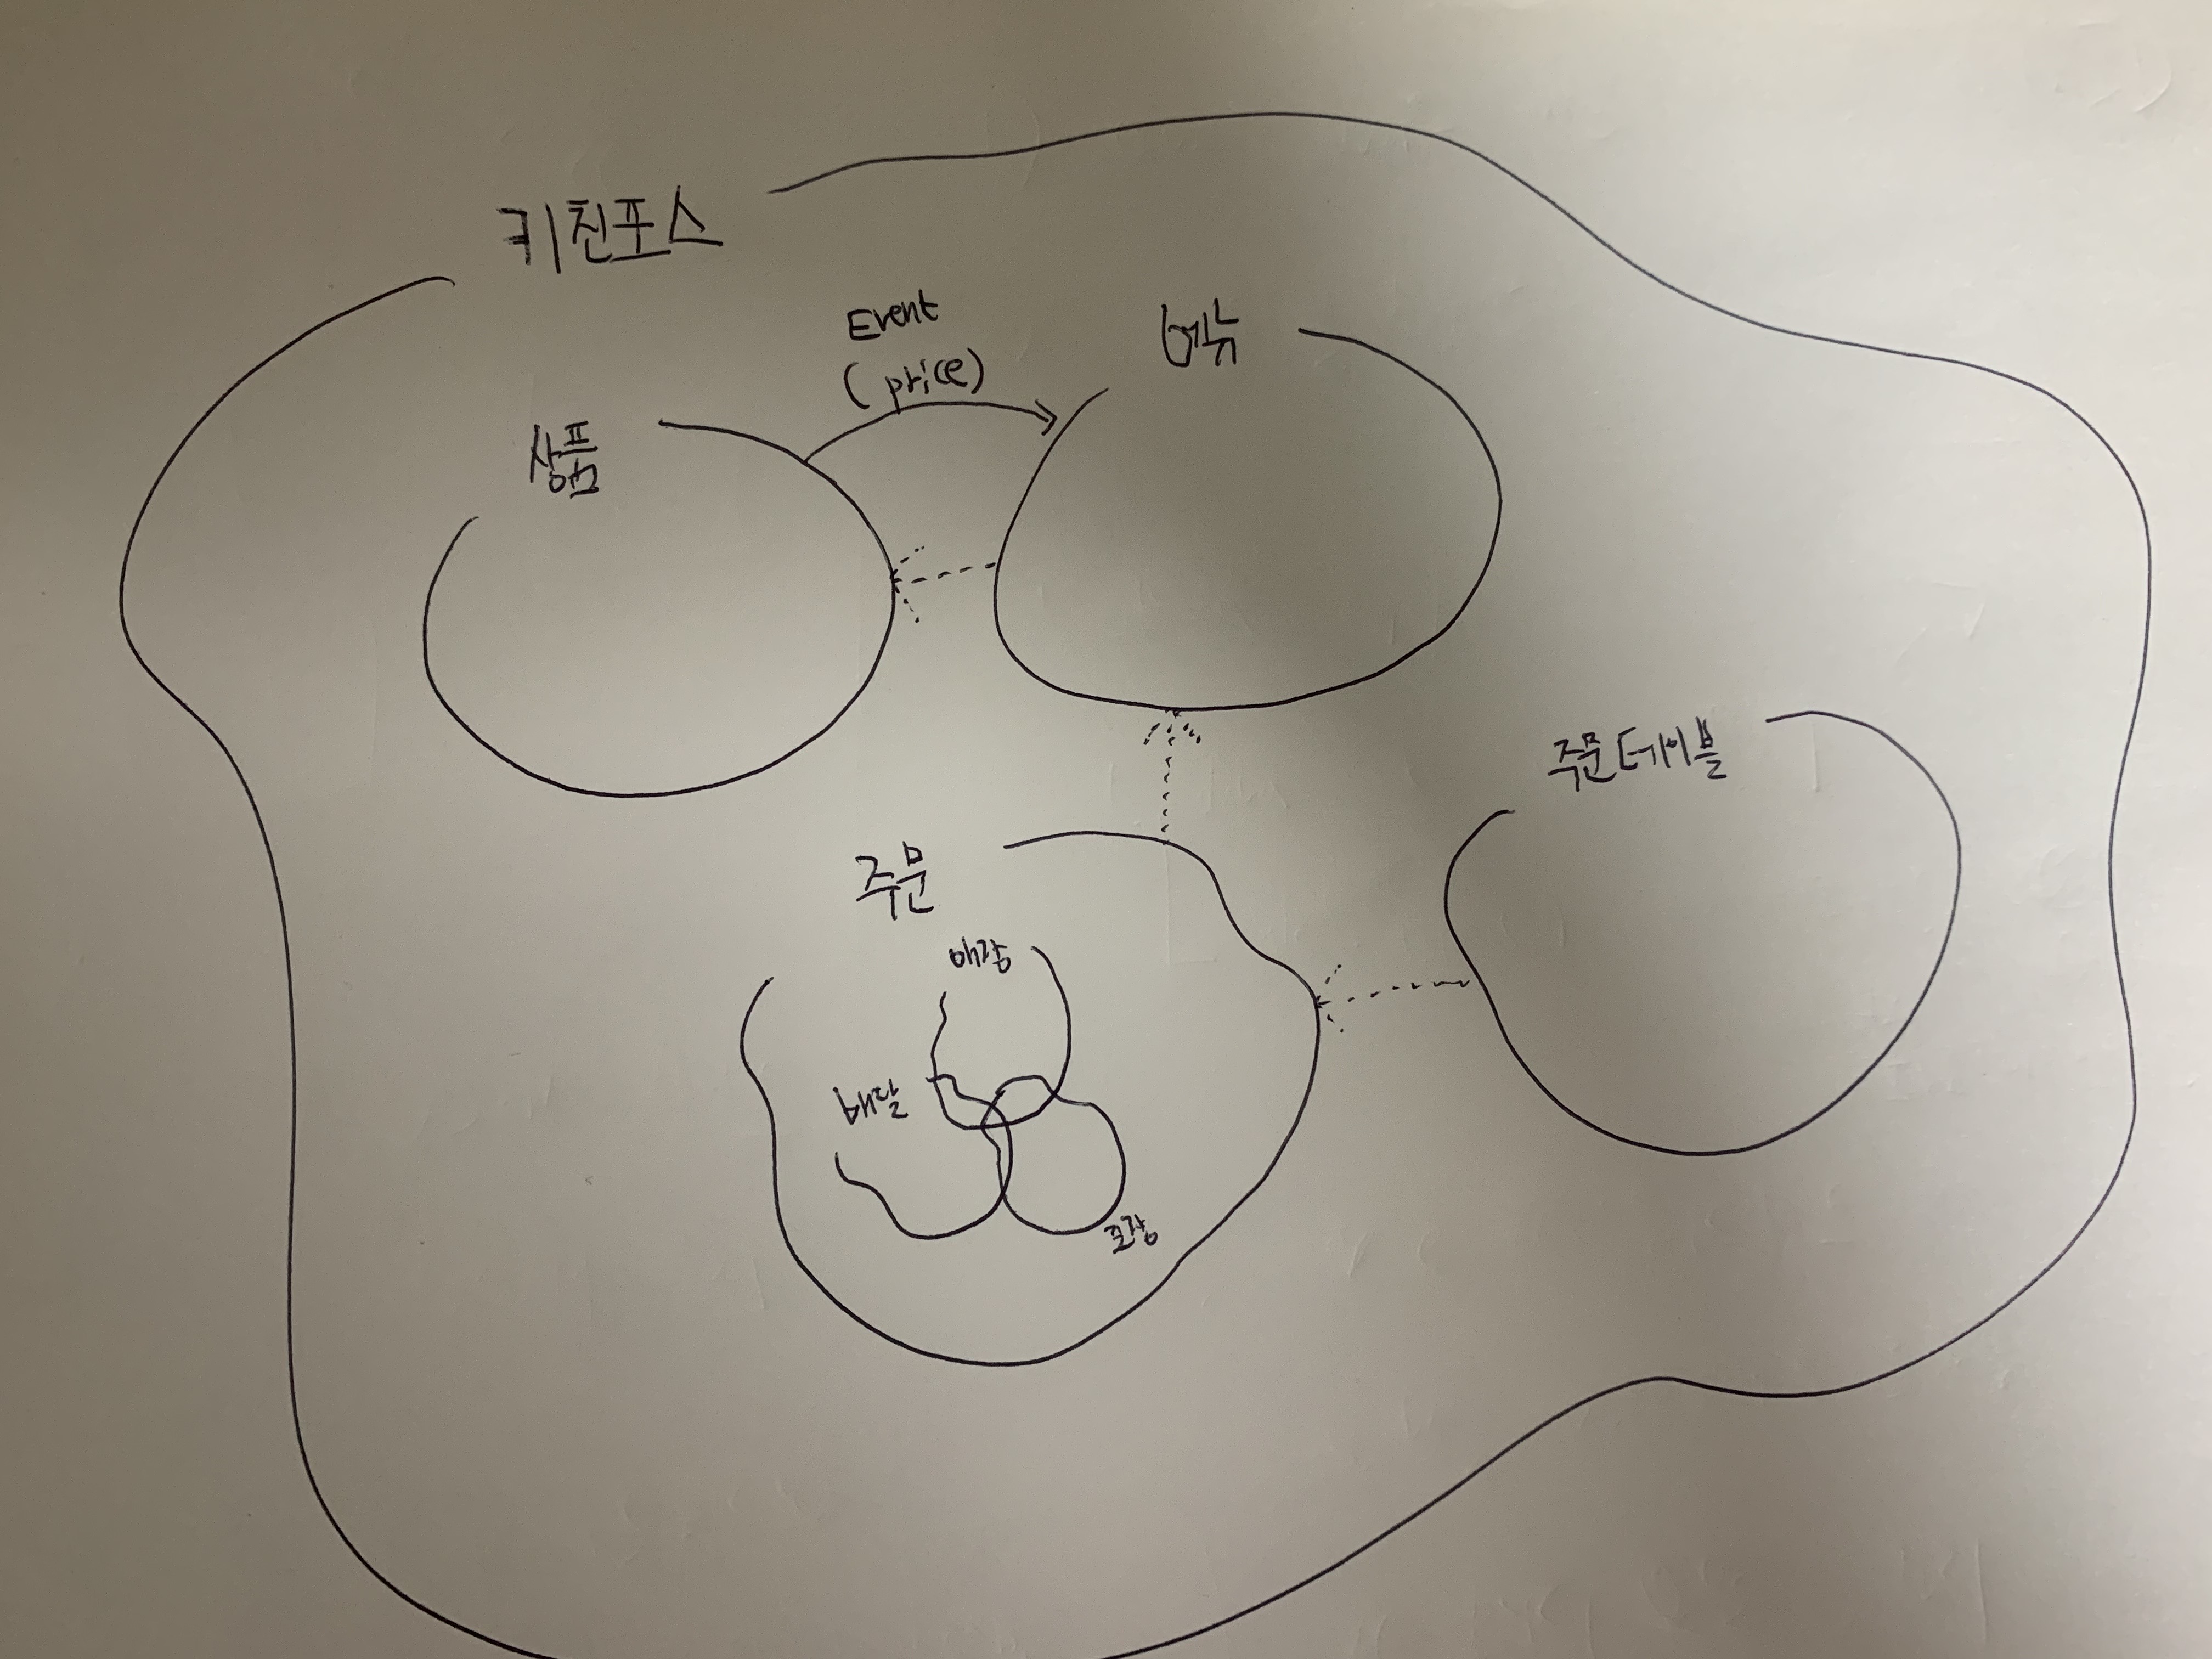 키친포스
Event
(price)
메뉴
상품
주문테이블
주문
매장
배달
포장